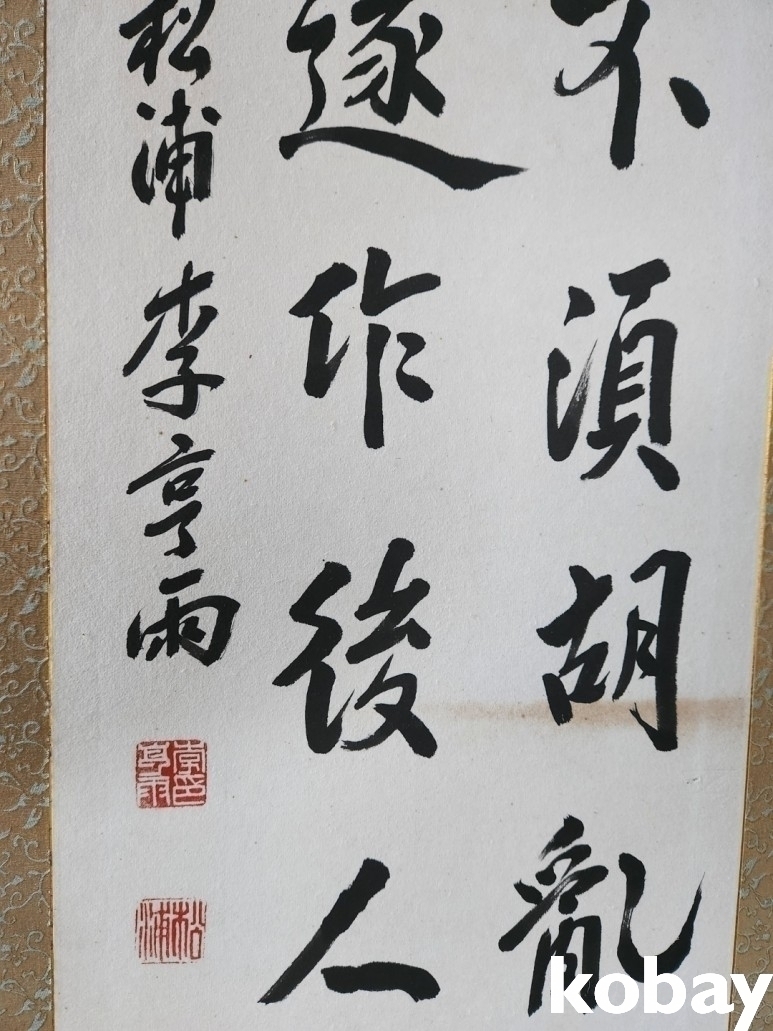 不須胡亂
遂作後人
松浦李亨雨
李印亨雨
松浦
kobay